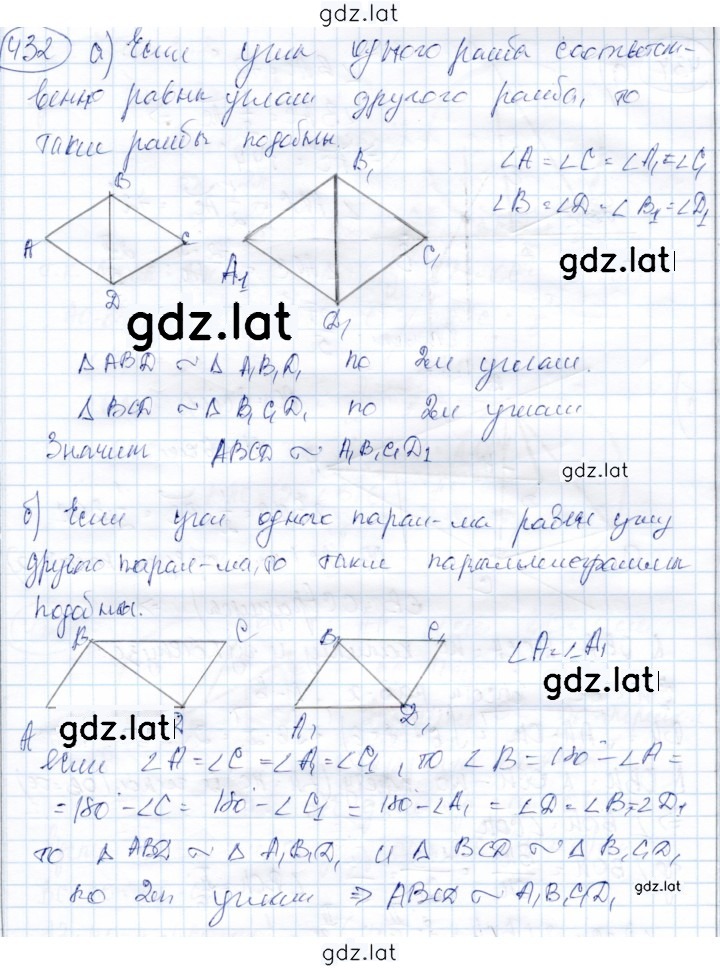 gdz.lat
432 а) Если углы одного ромба соответст-
венно равны углам другого ромба, то
такие ромбы подобны.
∠A = ∠C = ∠A₁ = ∠C₁
∠B = ∠D = ∠B₁ = ∠D₁
B
A
C
D
B₁
A₁
C₁
D₁
gdz.lat
gdz.lat
Δ ABD ~ Δ A₁B₁D₁ по 2м углам.
Δ BCD ~ Δ B₁C₁D₁ по 2м углам
Значит ABCD ~ A₁B₁C₁D₁
gdz.lat
б) Если угол одного парал-ма равен углу
другого парал-ма, то такие параллелограммы
подобны.
B
C
A
B₁
C₁
A₁
D₁
∠A = ∠A₁
gdz.lat
gdz.lat
если ∠A = ∠C = ∠A₁ = ∠C₁, то ∠B = 180° - ∠A =
= 180° - ∠C = 180° - ∠C₁ = 180° - ∠A₁ = ∠D = ∠B₁ = ∠D₁
то Δ ABD ~ Δ A₁B₁D₁ и Δ BCD ~ Δ B₁C₁D₁
по 2м углам ⇒ ABCD ~ A₁B₁C₁D₁
gdz.lat
gdz.lat